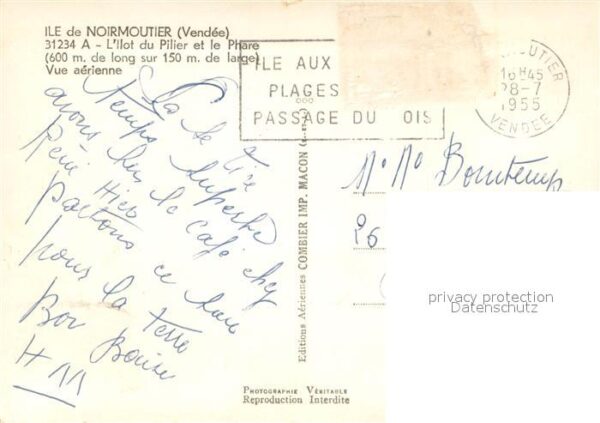 ILE de NOIRMOUTIER (Vendée)
31234 A - L'Ilot du Pilier et le Phare
(600 m. de long sur 150 m. de large)
Vue aérienne
ILE AUX
PLAGES
PASSAGE DU OIS
OUTIER
16H45
28-7
1955
VENDÉE
temps superbe
avons bu le café chez
René Hier
partons ce
pour la terre
Bon Baiser
H M
26
Editions Aériennes COMBIER IMP. MACON
PHOTOGRAPHIE VÉRITABLE
Reproduction Interdite
privacy protection
Datenschutz